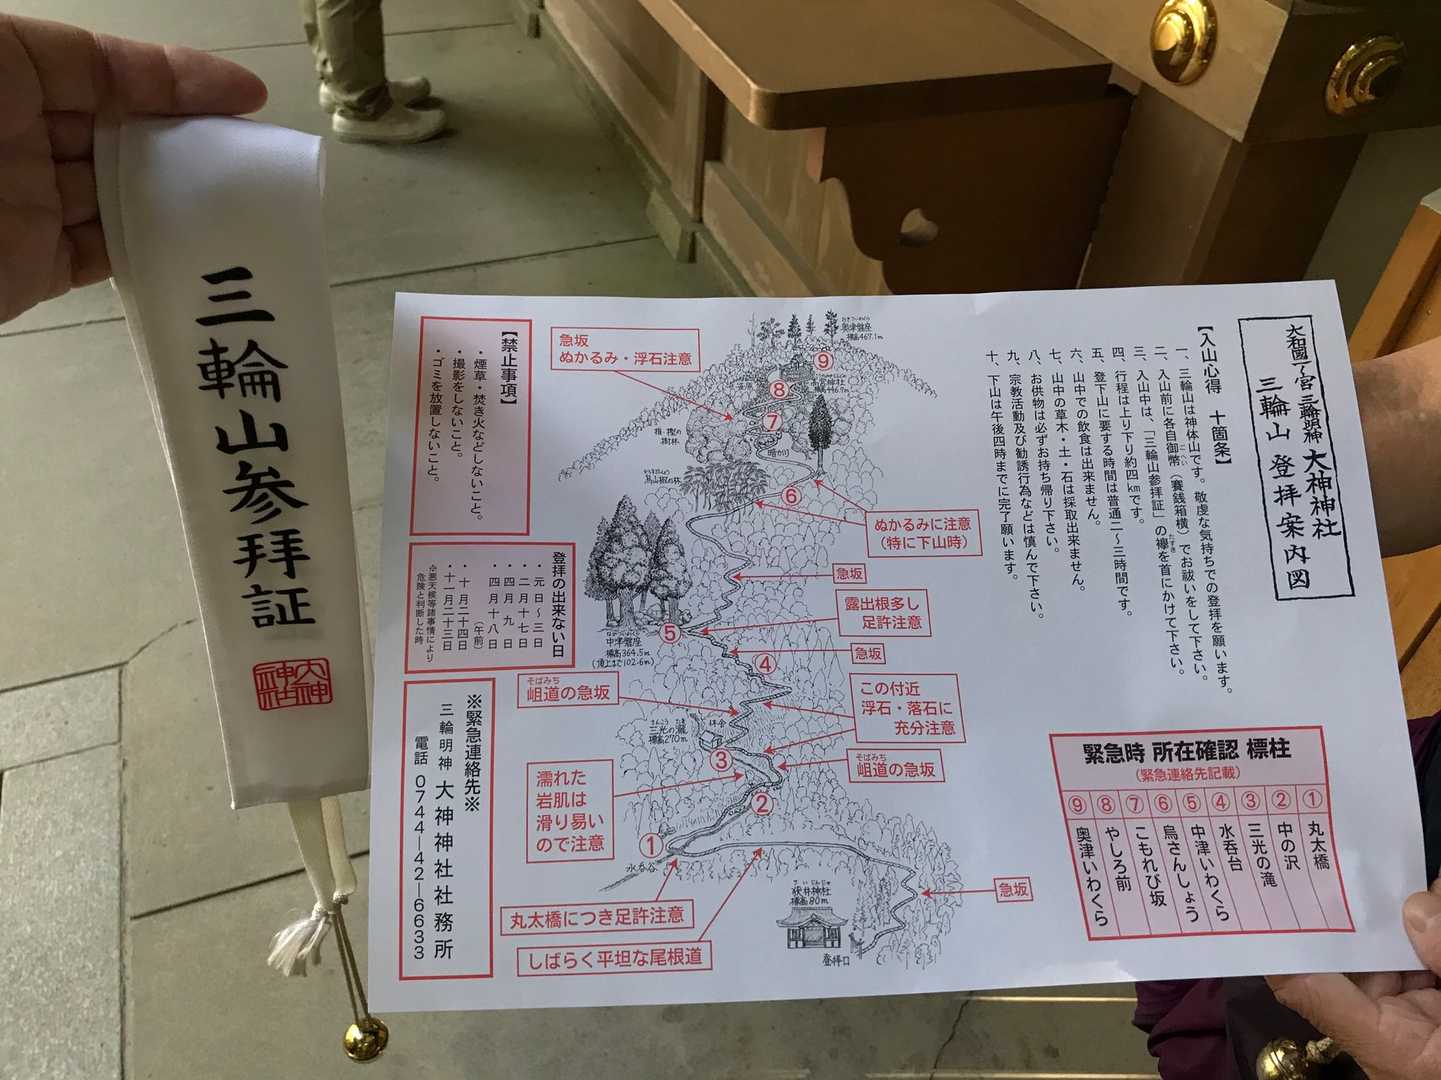 三輪山参拝証
大神神社
大和國一宮三輪明神 大神神社
三輪山登拝案内図
【入山心得 十箇条】
一、三輪山は神体山です。敬虔な気持ちでの登拝を願います。
二、入山前に各自御幣(賽銭箱横)でお祓いをして下さい。
三、入山中は、「三輪山参拝証」の襷を首にかけて下さい。
四、行程は上り下り約四㎞です。
五、登下山に要する時間は普通二〜三時間です。
六、山中での飲食は出来ません。
七、山中の草木・土・石は採取出来ません。
八、お供物は必ずお持ち帰り下さい。
九、宗教活動及び勧誘行為などは慎んで下さい。
十、下山は午後四時までに完了願います。
緊急時 所在確認 標柱
(緊急連絡先記載)
① 丸太橋
② 中の沢
③ 三光の滝
④ 水呑台
⑤ 中津いわくら
⑥ 烏さんしょう
⑦ こもれび坂
⑧ やしろ前
⑨ 奥津いわくら
奥津磐座
標高467.1m
⑨
⑧
⑦
⑥
⑤
④
③
②
①
急坂
ぬかるみ・浮石注意
ぬかるみに注意
(特に下山時)
急坂
露出根多し
足許注意
急坂
中津磐座
標高364.5m
(頂上まで102.6m)
そばみち
岨道の急坂
この付近
浮石・落石に
充分注意
さんこう たき
三光の瀧
標高270m
そばみち
岨道の急坂
濡れた
岩肌は
滑り易い
ので注意
水呑谷
丸太橋につき足許注意
しばらく平坦な尾根道
急坂
さいじんじゃ
狭井神社
標高80m
登拝口
【禁止事項】
・煙草・焚き火などしないこと。
・撮影をしないこと。
・ゴミを放置しないこと。
登拝の出来ない日
・元日〜三日
・二月十七日
・四月九日(午前)
・四月十八日
・十月二十四日
・十一月二十三日
※悪天候等諸事情により
危険と判断した時
※緊急連絡先※
三輪明神 大神神社社務所
電話 0744―42―6633